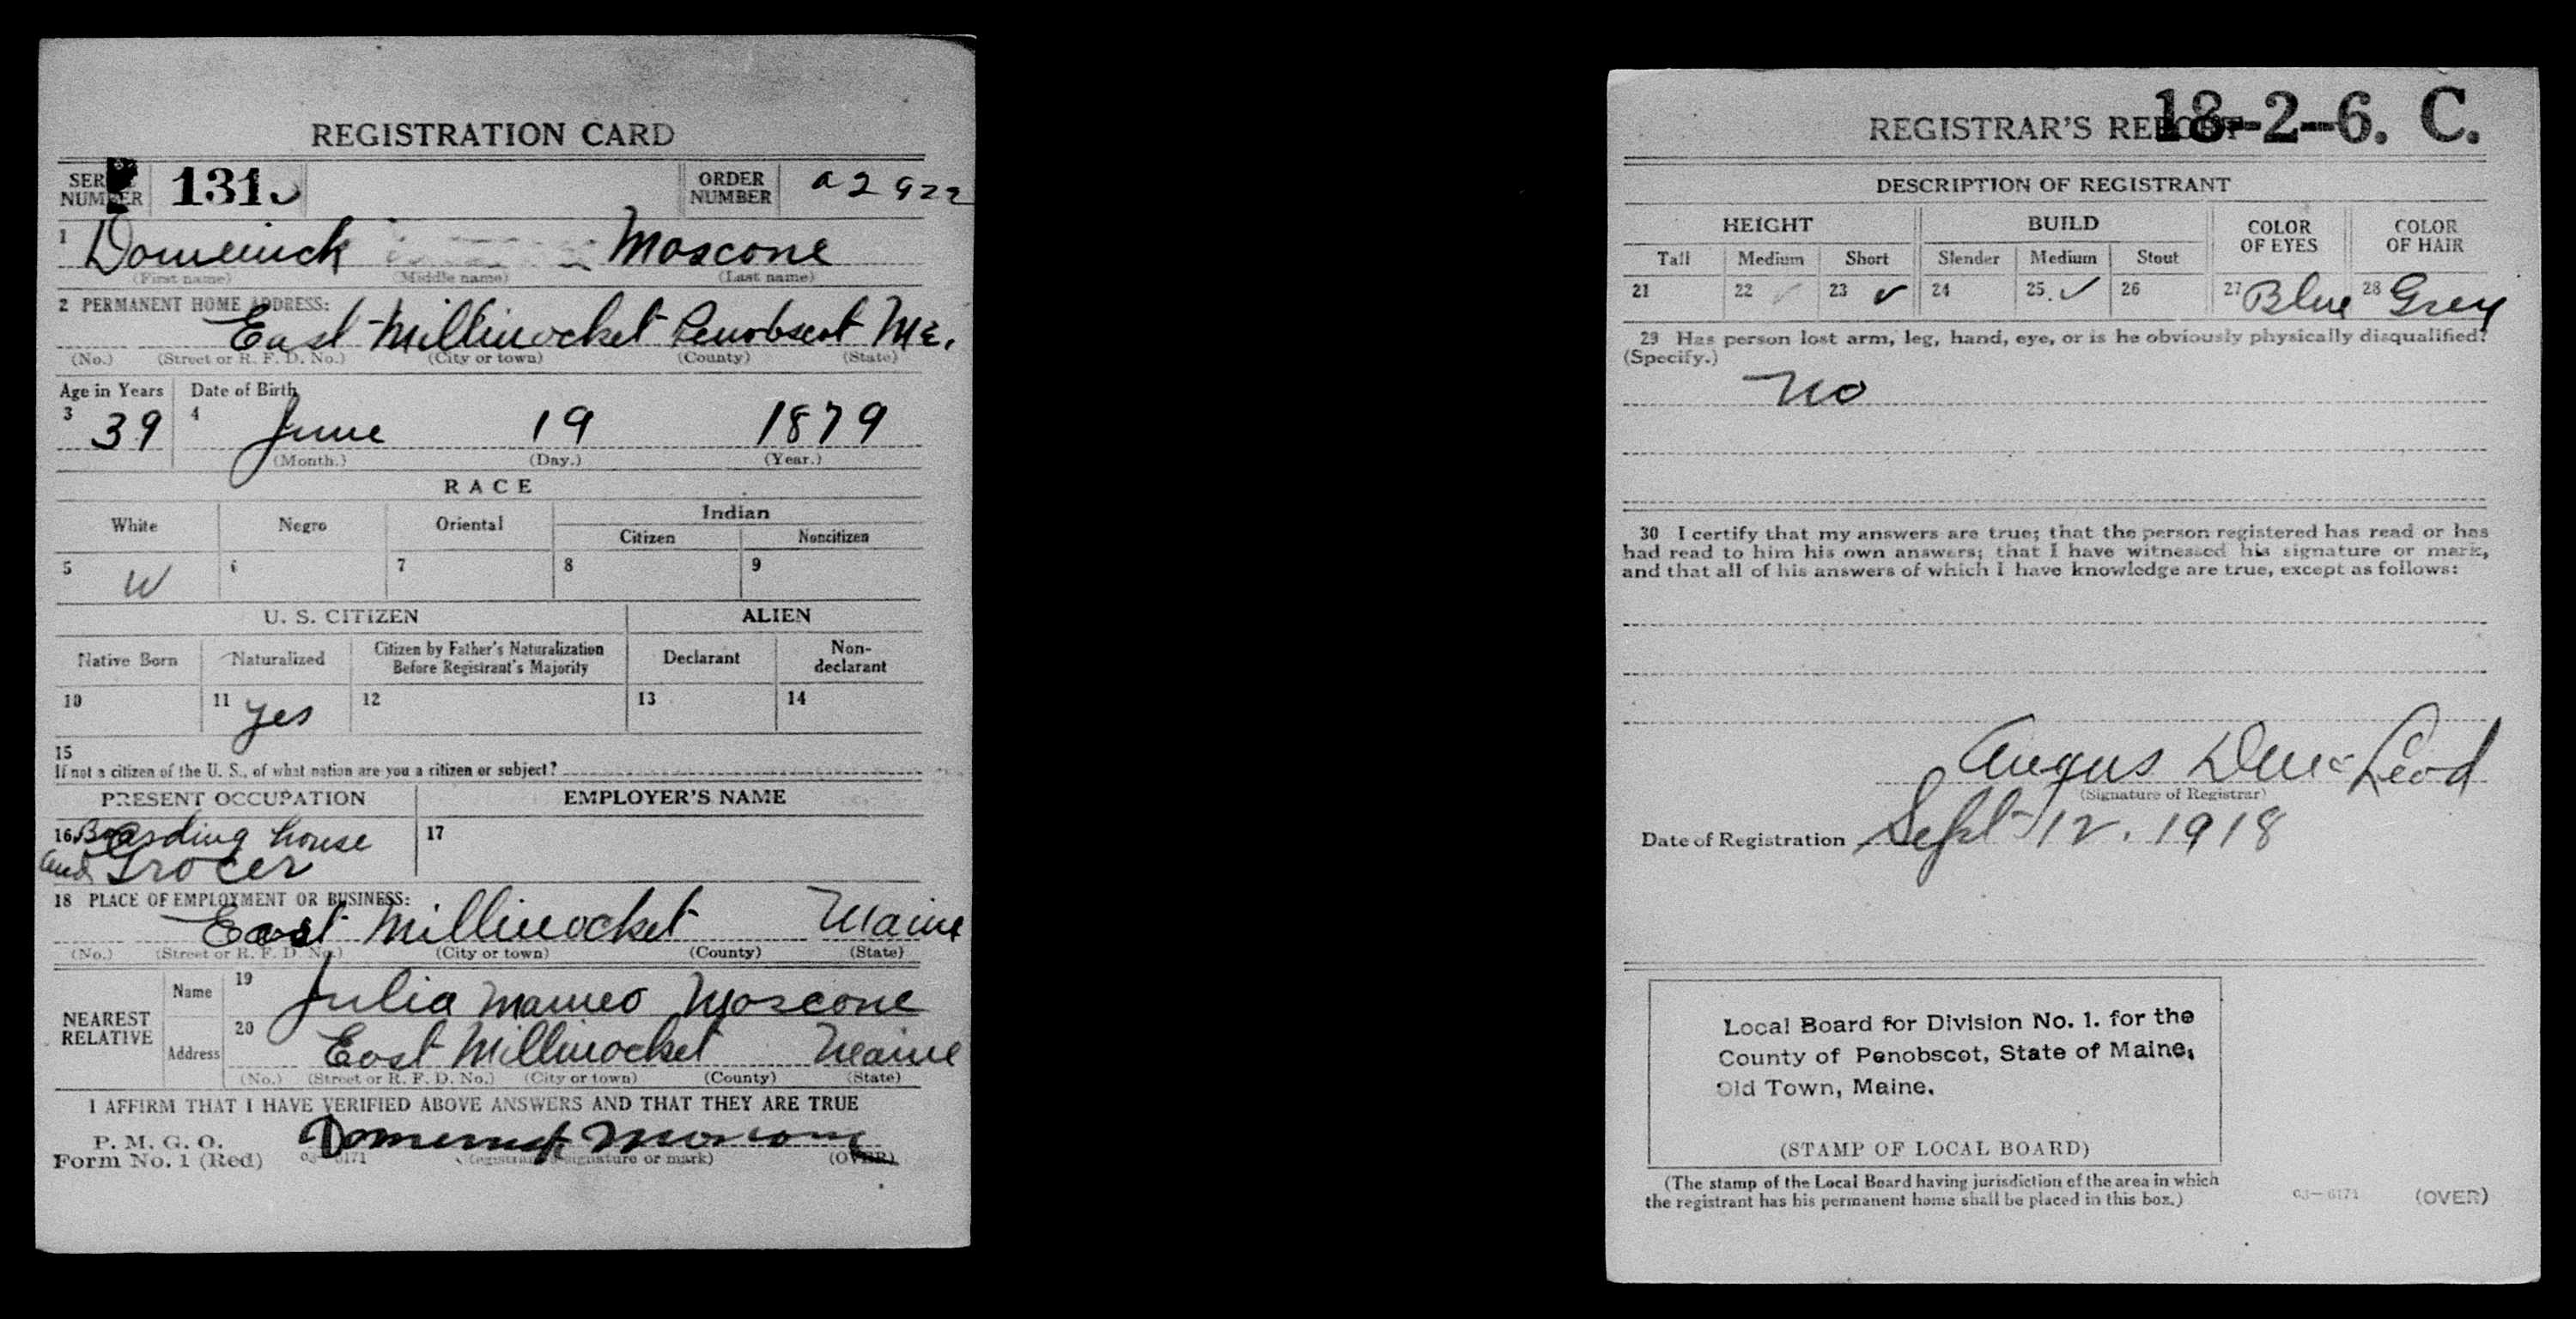 REGISTRATION CARD
SERIAL NUMBER 131
ORDER NUMBER a2922
1 Domenick Moscone
(First name) (Middle name) (Last name)
2 PERMANENT HOME ADDRESS:
East Millinocket Penobscot Me.
(No.) (Street or R. F. D. No.) (City or town) (County) (State)
Age in Years Date of Birth
3 39 4 June 19 1879
(Month.) (Day.) (Year.)
RACE
White Negro Oriental Indian
Citizen Noncitizen
5 W 6 7 8 9
U. S. CITIZEN ALIEN
Native Born Naturalized Citizen by Father's Naturalization Before Registrant's Majority Declarant Non-declarant
10 11 yes 12 13 14
15
If not a citizen of the U. S., of what nation are you a citizen or subject?
PRESENT OCCUPATION EMPLOYER'S NAME
16 Boarding house 17
and Grocer
18 PLACE OF EMPLOYMENT OR BUSINESS:
East Millinocket Maine
(No.) (Street or R. F. D. No.) (City or town) (County) (State)
NEAREST RELATIVE
Name 19 Julia Moscone
Address 20 East Millinocket Maine
(No.) (Street or R. F. D. No.) (City or town) (County) (State)
I AFFIRM THAT I HAVE VERIFIED ABOVE ANSWERS AND THAT THEY ARE TRUE
P. M. G. O.
Form No. 1 (Red) 03—6171 Domenick Moscone
(Registrant's signature or mark) (OVER)
REGISTRAR'S REPORT 18-2-6. C.
DESCRIPTION OF REGISTRANT
HEIGHT BUILD COLOR OF EYES COLOR OF HAIR
Tall Medium Short Slender Medium Stout
21 22 23 ✓ 24 25 ✓ 26 27 Blue 28 Grey
29 Has person lost arm, leg, hand, eye, or is he obviously physically disqualified?
(Specify.)
No
30 I certify that my answers are true; that the person registered has read or has
had read to him his own answers; that I have witnessed his signature or mark,
and that all of his answers of which I have knowledge are true, except as follows:
Angus D McLeod
(Signature of Registrar)
Date of Registration Sept 12. 1918
Local Board for Division No. 1. for the
County of Penobscot, State of Maine,
Old Town, Maine.
(STAMP OF LOCAL BOARD)
(The stamp of the Local Board having jurisdiction of the area in which
the registrant has his permanent home shall be placed in this box.)
03—6171 (OVER)